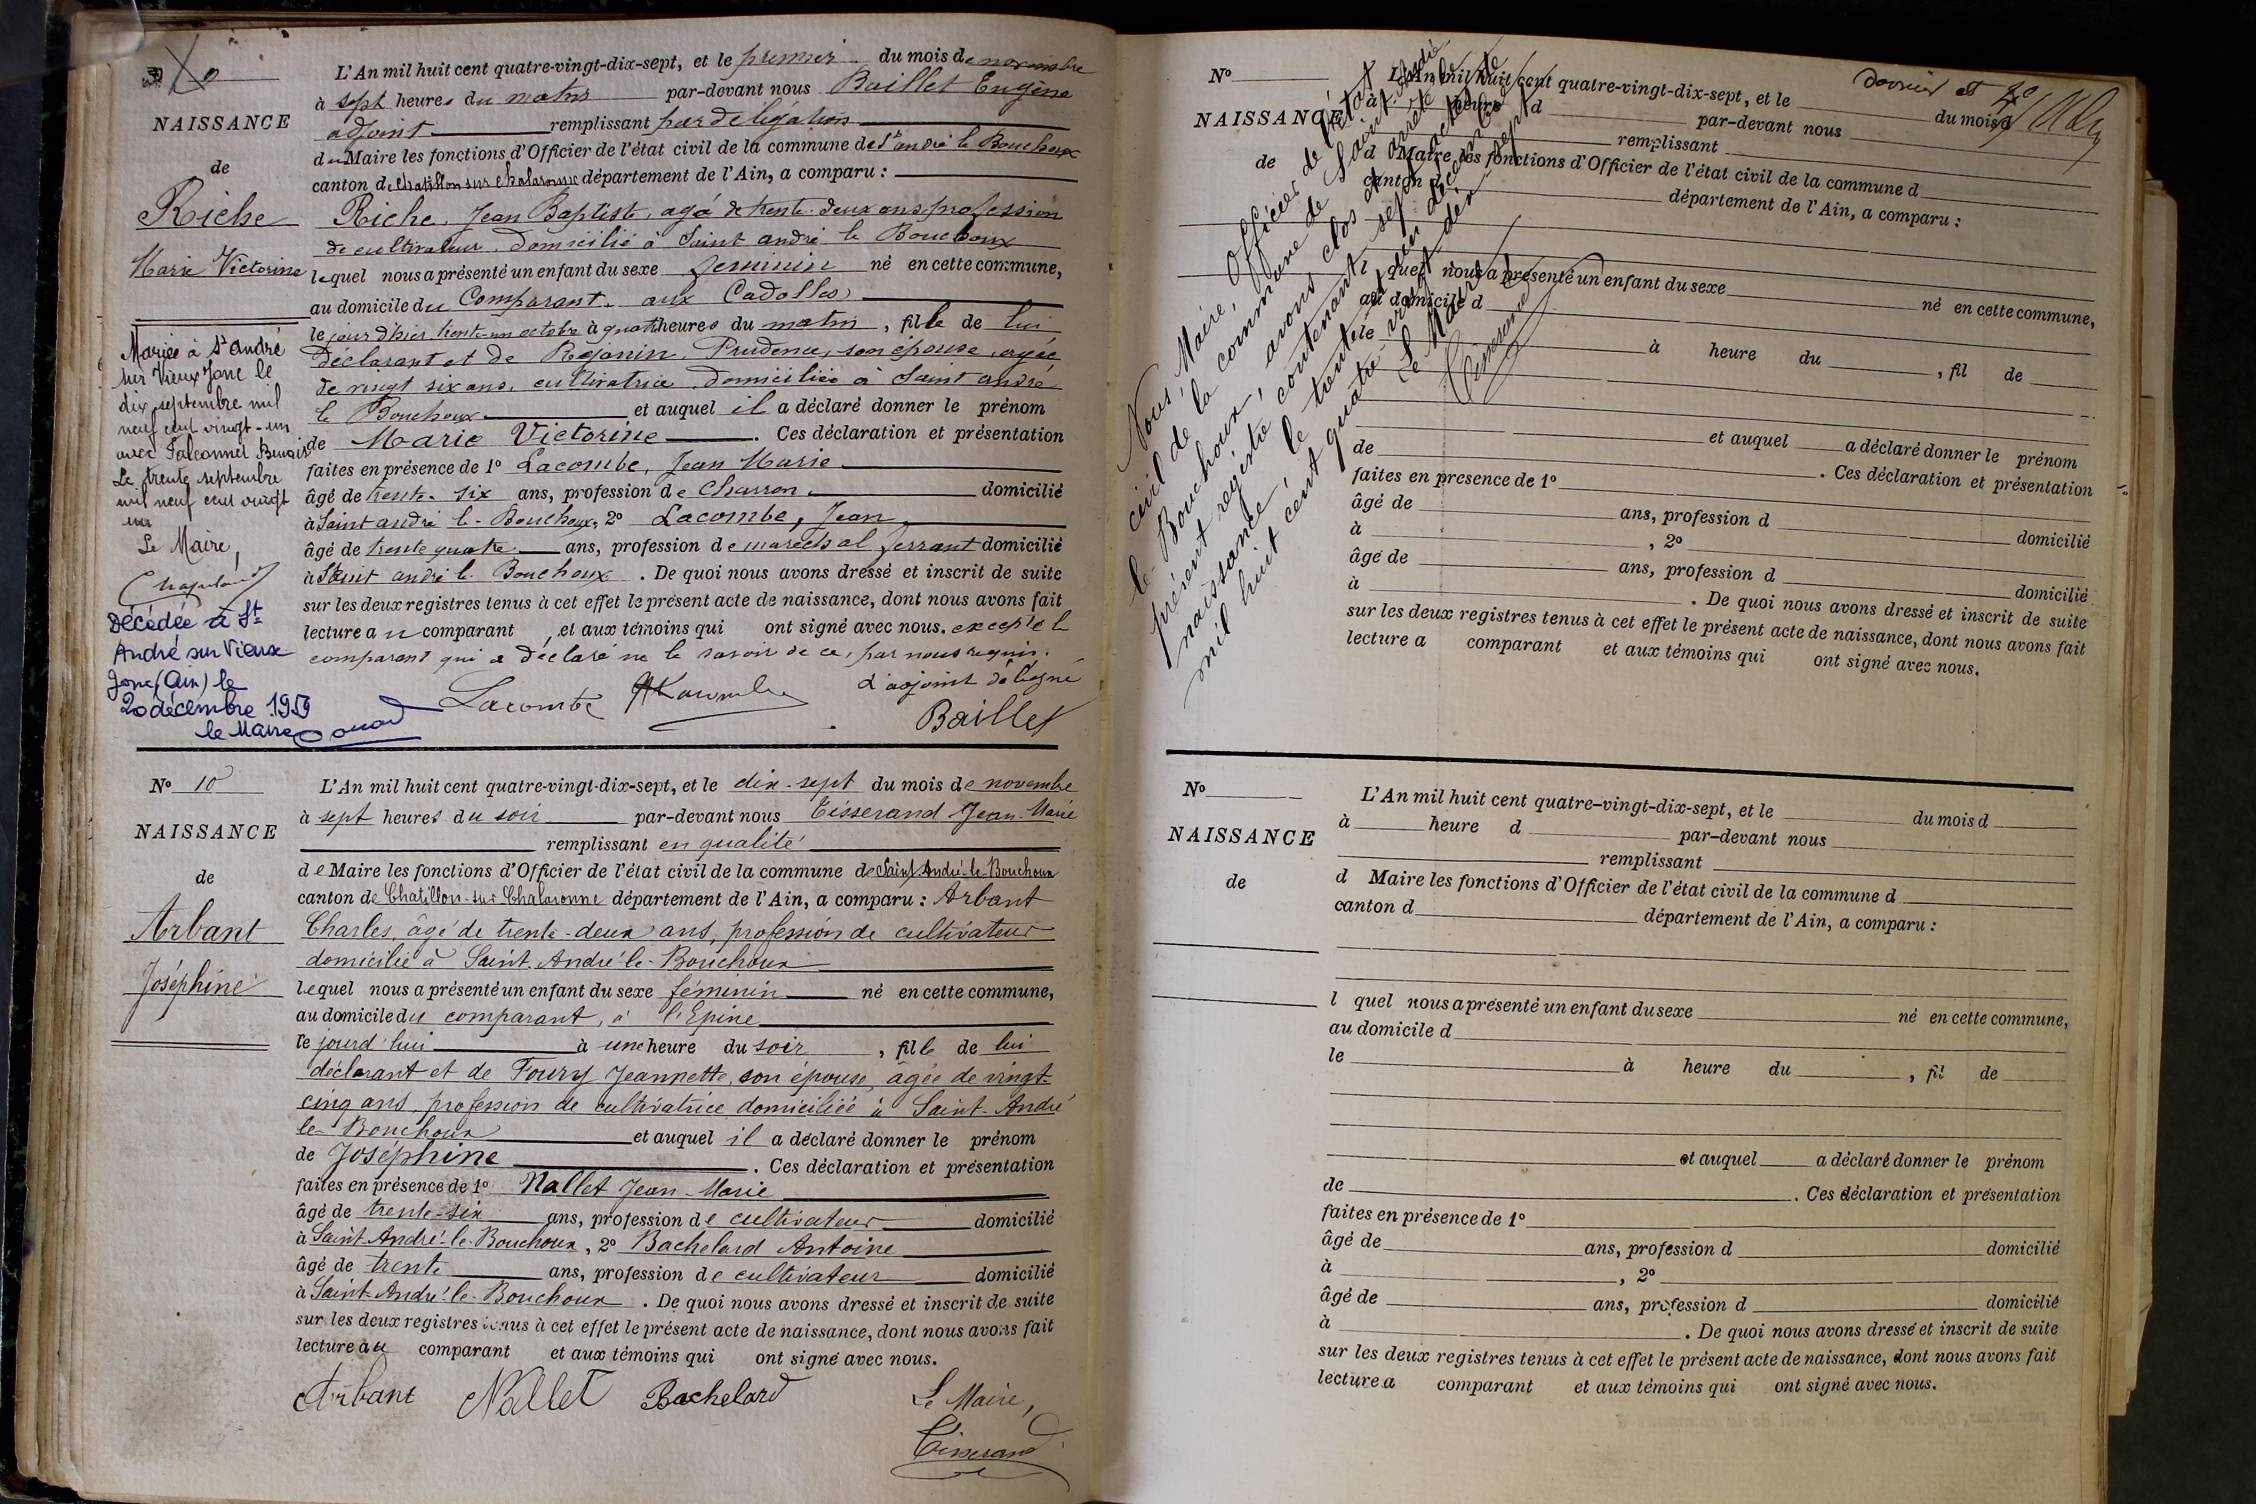 NAISSANCE
de
Riche
Marie Victorine
Mariée à St André
sur Vieux Jonc le
dix septembre mil
neuf cent vingt-un
avec Falconnet Benoit
Le trente septembre
mil neuf cent vingt
un
Le Maire,
Décédée à St
André sur Vieux
Jonc (Ain) le
20 décembre 1959
le Maire
L'An mil huit cent quatre-vingt-dix-sept, et le premier du mois de novembre
à sept heures du matin par-devant nous Baillet Eugène
adjoint remplissant par délégation
du Maire les fonctions d'Officier de l'état civil de la commune de St andré le Bouchoux
canton de Chatillon sur Chalaronne département de l'Ain, a comparu :
Riche, Jean Baptiste, agé de trente-deux ans profession
de cultivateur domicilié à Saint andré le Bouchoux
lequel nous a présenté un enfant du sexe feminin né en cette commune,
au domicile du Comparant aux Cadolles
le jour d'hier, trente-un octobre à quatre heures du matin, fille de lui
déclarant et de Rejonin Prudence, son épouse, agée
de vingt six ans, cultivatrice domiciliée à Saint andré
le Bouchoux et auquel il a déclaré donner le prénom
de Marie Victorine. Ces déclaration et présentation
faites en présence de 1o Lacombe, Jean Marie
âgé de trente-six ans, profession de charron domicilié
à Saint andré le Bouchoux, 2o Lacombe, Jean
âgé de trente quatre ans, profession de maréchal ferrant domicilié
à Saint andré le Bouchoux. De quoi nous avons dressé et inscrit de suite
sur les deux registres tenus à cet effet le présent acte de naissance, dont nous avons fait
lecture au comparant, et aux témoins qui ont signé avec nous. excepté le
comparant qui a déclaré ne le savoir de ce, par nous requis.
L'adjoint délégué
Lacombe Lacombe
Baillet
No 10
NAISSANCE
de
Arbant
Joséphine
L'An mil huit cent quatre-vingt-dix-sept, et le dix-sept du mois de novembre
à sept heures du soir par-devant nous Tisserand Jean-Marie
remplissant en qualité
de Maire les fonctions d'Officier de l'état civil de la commune de Saint André-le-Bouchoux
canton de Chatillon-sur-Chalaronne département de l'Ain, a comparu : Arbant
Charles, âgé de trente-deux ans, profession de cultivateur
domicilié à Saint-André-le-Bouchoux
lequel nous a présenté un enfant du sexe féminin né en cette commune,
au domicile du comparant, à l'Epine
le jourd'hui à une heure du soir, fille de lui
déclarant et de Foury Jeannette, son épouse, âgée de vingt-
cinq ans, profession de cultivatrice domiciliée à Saint-André
le-Bouchoux et auquel il a déclaré donner le prénom
de Joséphine. Ces déclaration et présentation
faites en présence de 1o Nallet Jean-Marie
âgé de trente-six ans, profession de cultivateur domicilié
à Saint-André-le-Bouchoux, 2o Bachelard Antoine
âgé de trente ans, profession de cultivateur domicilié
à Saint-André-le-Bouchoux. De quoi nous avons dressé et inscrit de suite
sur les deux registres tenus à cet effet le présent acte de naissance, dont nous avons fait
lecture au comparant et aux témoins qui ont signé avec nous.
Arbant Nallet Bachelard Le Maire,
Tisserand
dernier et
No
NAISSANCE
de
L'An mil huit cent quatre-vingt-dix-sept, et le du mois d
à heure d par-devant nous
remplissant
d Maire les fonctions d'Officier de l'état civil de la commune d
canton d département de l'Ain, a comparu :
l quel nous a présenté un enfant du sexe né en cette commune,
au domicile d
le à heure du , fil de
et auquel a déclaré donner le prénom
de . Ces déclaration et présentation
faites en presence de 1o
âgé de ans, profession d domicilié
à , 2o
âgé de ans, profession d domicilié
à . De quoi nous avons dressé et inscrit de suite
sur les deux registres tenus à cet effet le présent acte de naissance, dont nous avons fait
lecture a comparant et aux témoins qui ont signé avec nous.
Nous, Maire, Officier de l'état
civil de la commune de Saint-André
le-Bouchoux, avons clos et arrêté le
présent registre contenant sept actes de
naissance, le trente et un décembre
mil huit cent quatre-vingt-dix-sept
Le Maire,
Tisserand
No
NAISSANCE
de
L'An mil huit cent quatre-vingt-dix-sept, et le du mois d
à heure d par-devant nous
remplissant
d Maire les fonctions d'Officier de l'état civil de la commune d
canton d département de l'Ain, a comparu :
l quel nous a présenté un enfant du sexe né en cette commune,
au domicile d
le à heure du , fil de
et auquel a déclaré donner le prénom
de . Ces déclaration et présentation
faites en présence de 1o
âgé de ans, profession d domicilié
à , 2o
âgé de ans, profession d domicilié
à . De quoi nous avons dressé et inscrit de suite
sur les deux registres tenus à cet effet le présent acte de naissance, dont nous avons fait
lecture a comparant et aux témoins qui ont signé avec nous.